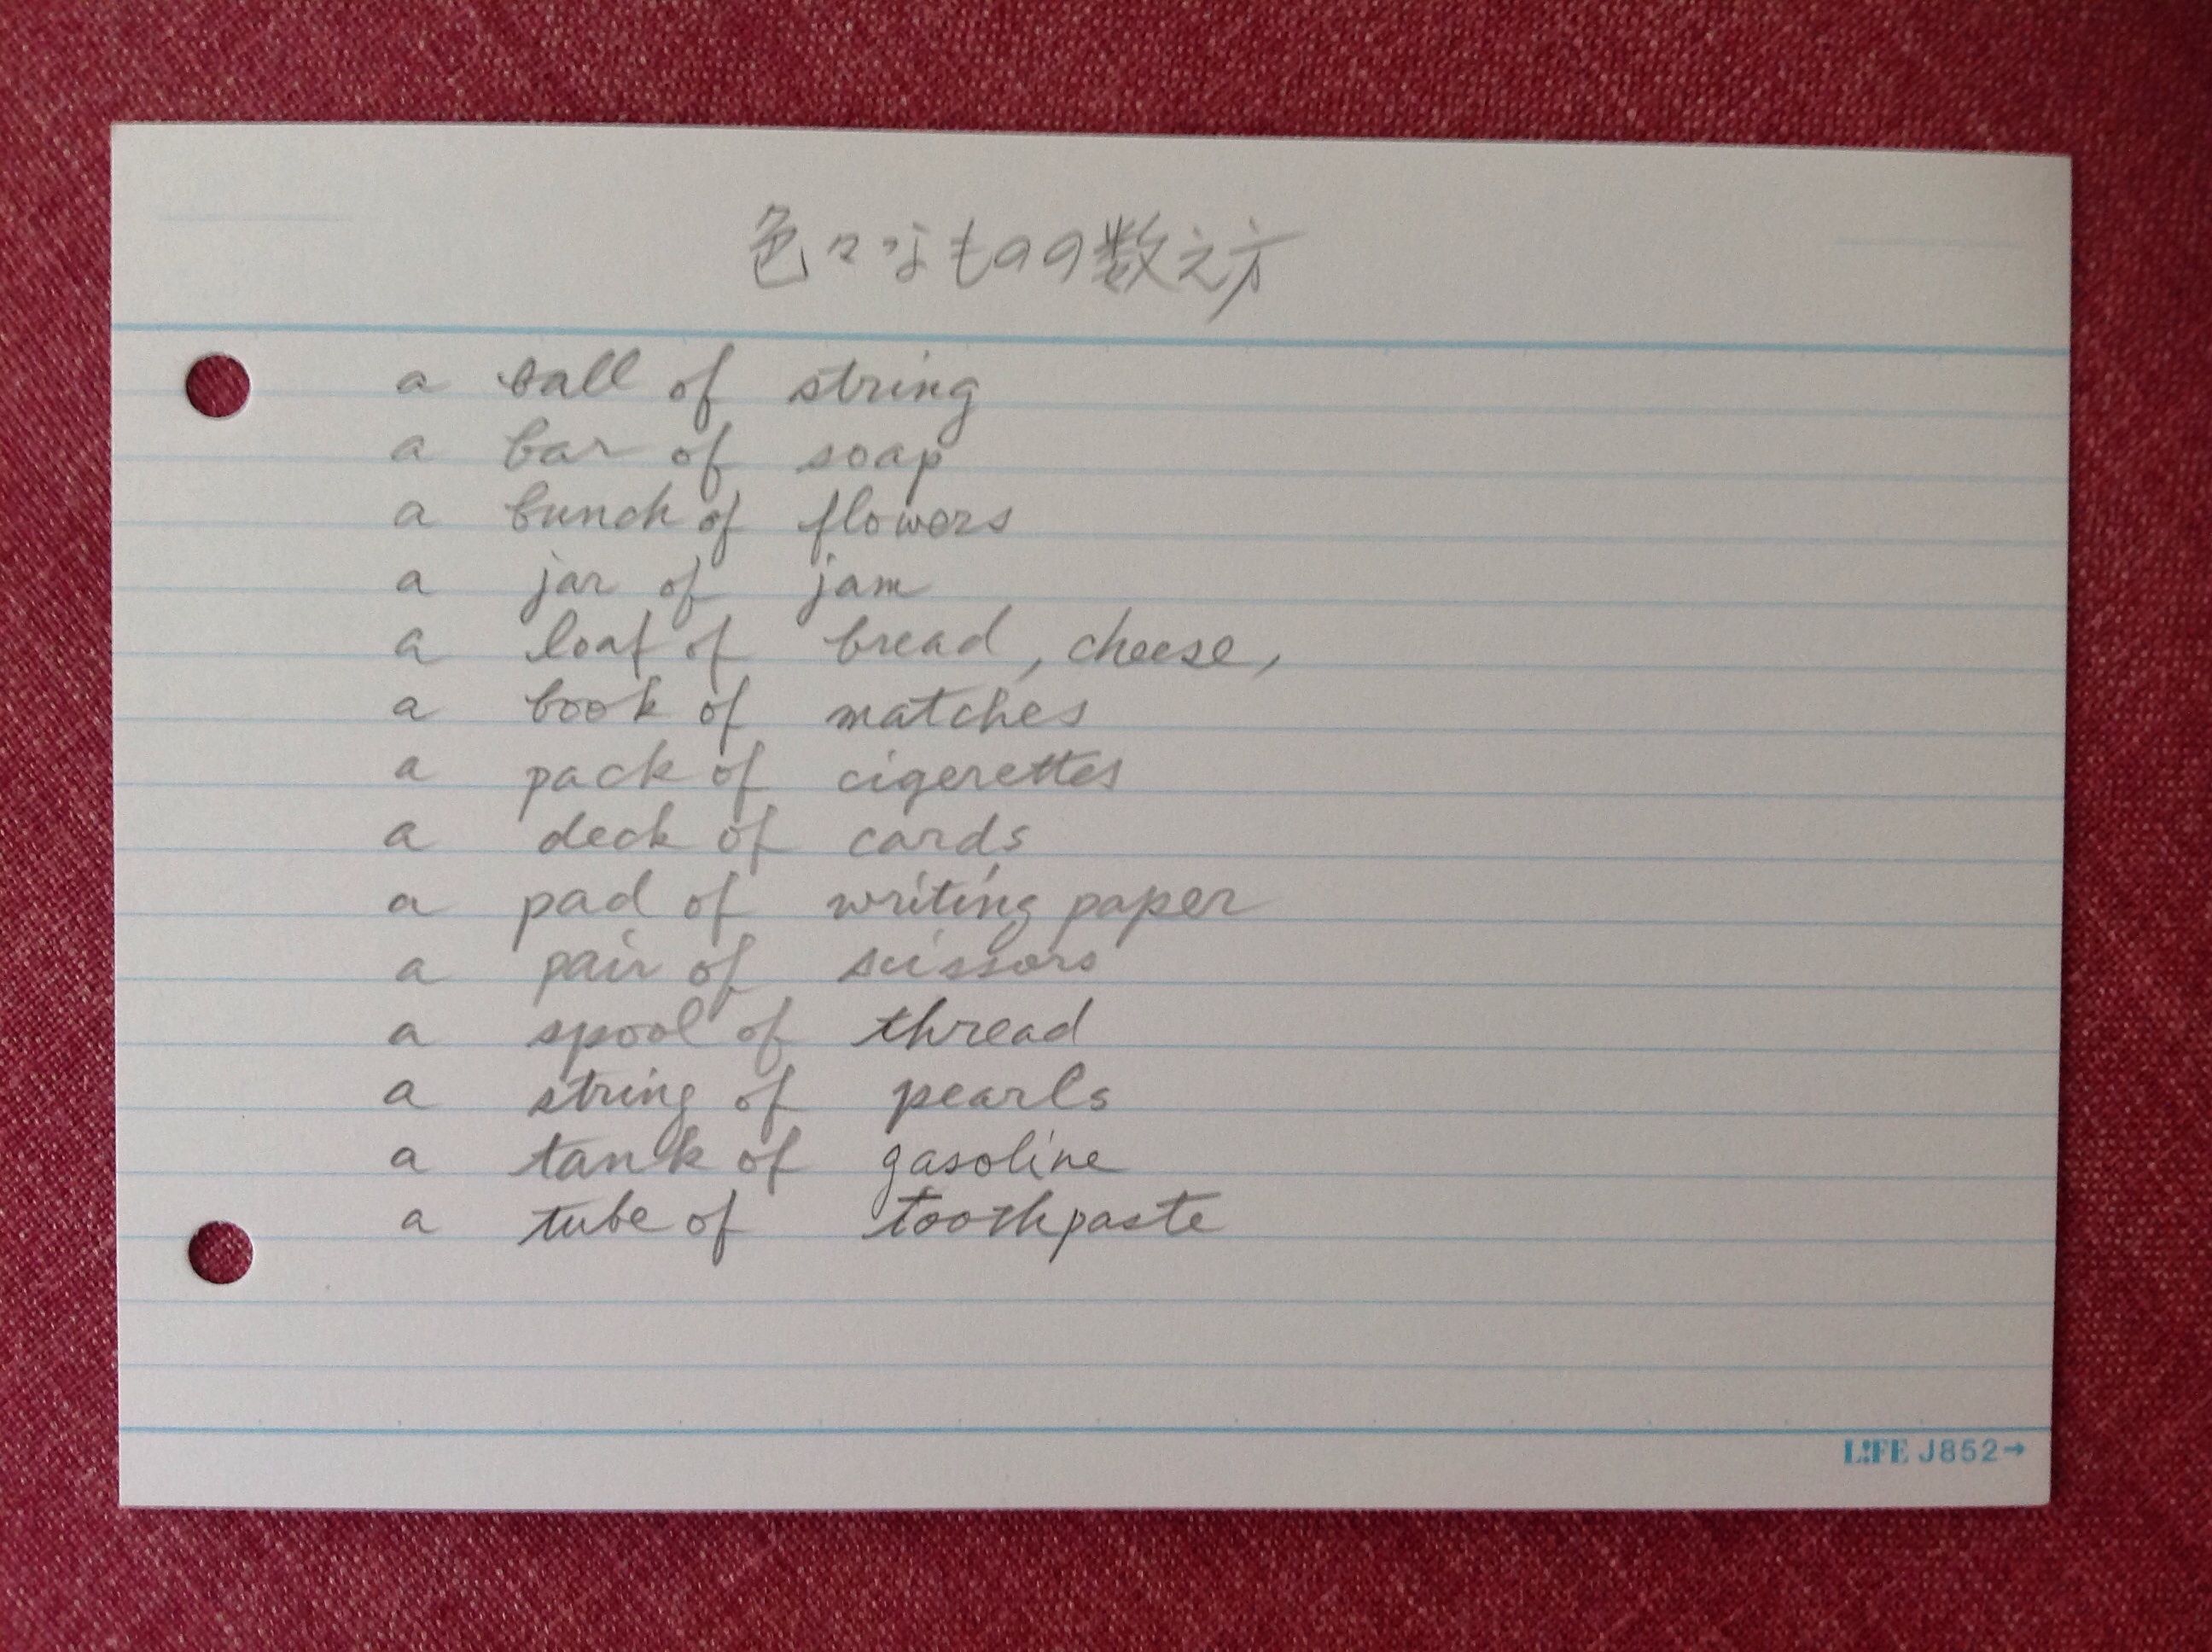 色々なものの数え方
a ball of string
a bar of soap
a bunch of flowers
a jar of jam
a loaf of bread, cheese,
a book of matches
a pack of cigerettes
a deck of cards
a pad of writing paper
a pair of scissors
a spool of thread
a string of pearls
a tank of gasoline
a tube of toothpaste
L!FE J852→